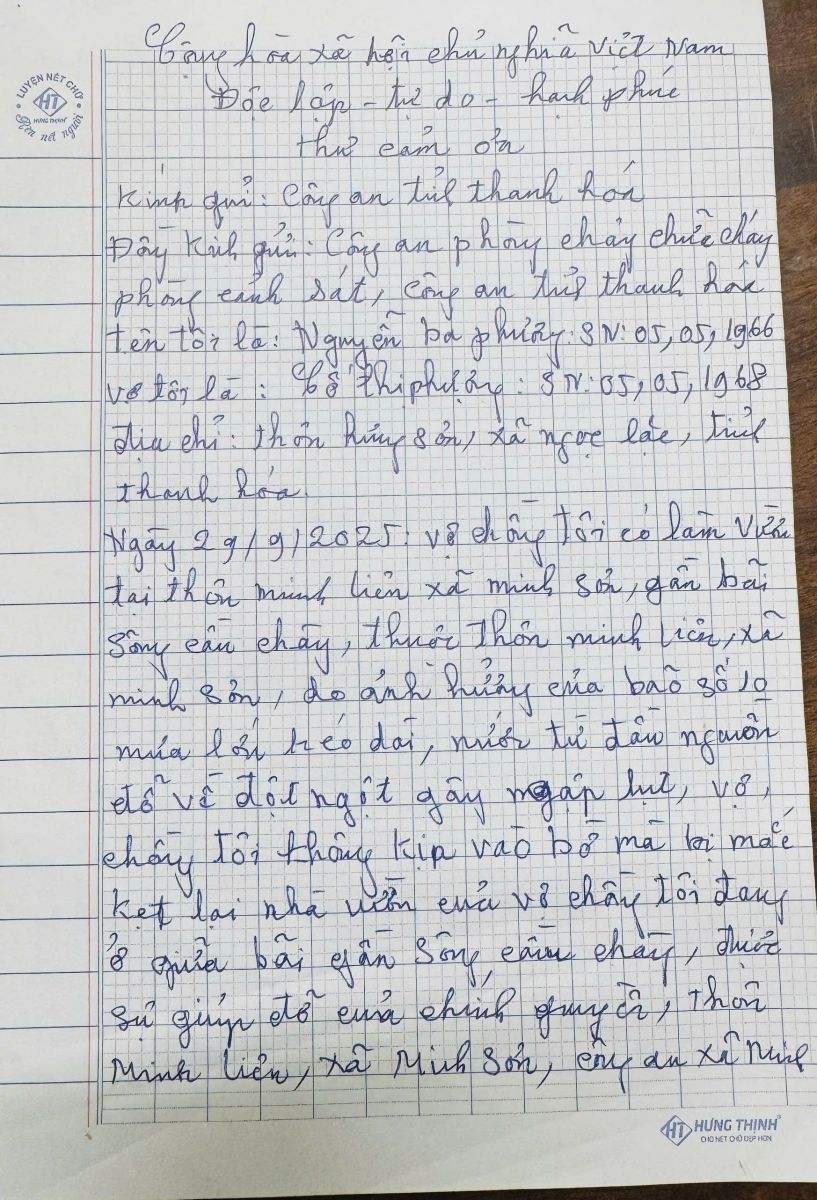 Cộng hòa xã hội chủ nghĩa việt Nam
LUYỆN NÉT CHỮ
HT
HƯNG THỊNH
Rèn nết người
Độc lập - tự do - hạnh phúc
thư cảm ơn
Kính gửi: Công an tỉnh thanh hóa
Đồng Kính gửi: Công an phòng cháy chữa cháy
phòng cảnh sát, công an tỉnh thanh hóa
tên tôi là: Nguyễn bá phương: SN: 05, 05, 1966
vợ tôi là: thị phượng: SN: 05, 05, 1968
địa chỉ: thôn hưng sơn, xã ngọc lặc, tỉnh
thanh hóa.
Ngày 29/9/2025: vợ chồng tôi có làm vườn
tại thôn minh liên xã minh sơn, gần bãi
sông cầu chày, thuộc thôn minh liên, xã
minh sơn, do ảnh hưởng của bão số 10
mưa lớn kéo dài, nước từ đầu nguồn
đổ về đột ngột gây ngập lụt, vợ,
chồng tôi không kịp vào bờ mà bị mắc
kẹt lại nhà vườn của vợ chồng tôi đang
ở giữa bãi gần sông cầu chày, được
sự giúp đỡ của chính quyền, thôn
Minh liên, xã Minh Sơn, công an xã Minh
HT HƯNG THỊNH
CHO NÉT CHỮ ĐẸP HƠN